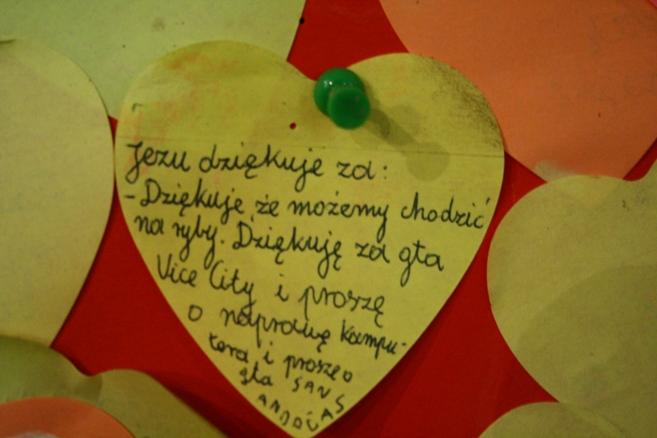 Jezu dziękuje za:
- Dziękuje że możemy chodzić
na ryby. Dziękuję za gta
Vice City i proszę
o naprawę kompu-
tera i prosze o
gta SANS
ANDREAS